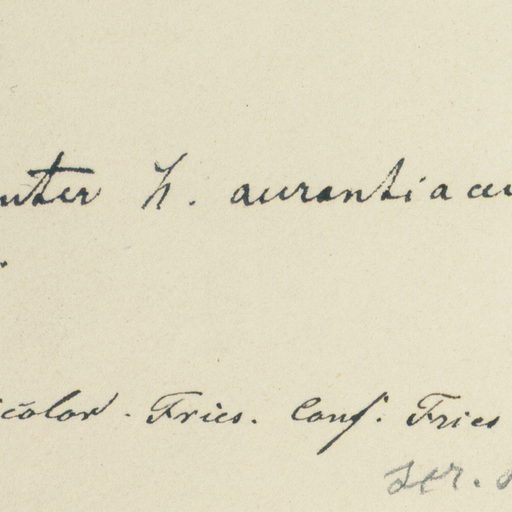 unter H. aurantiacu
.
icolor. Fries. Conf. Fries
ser.